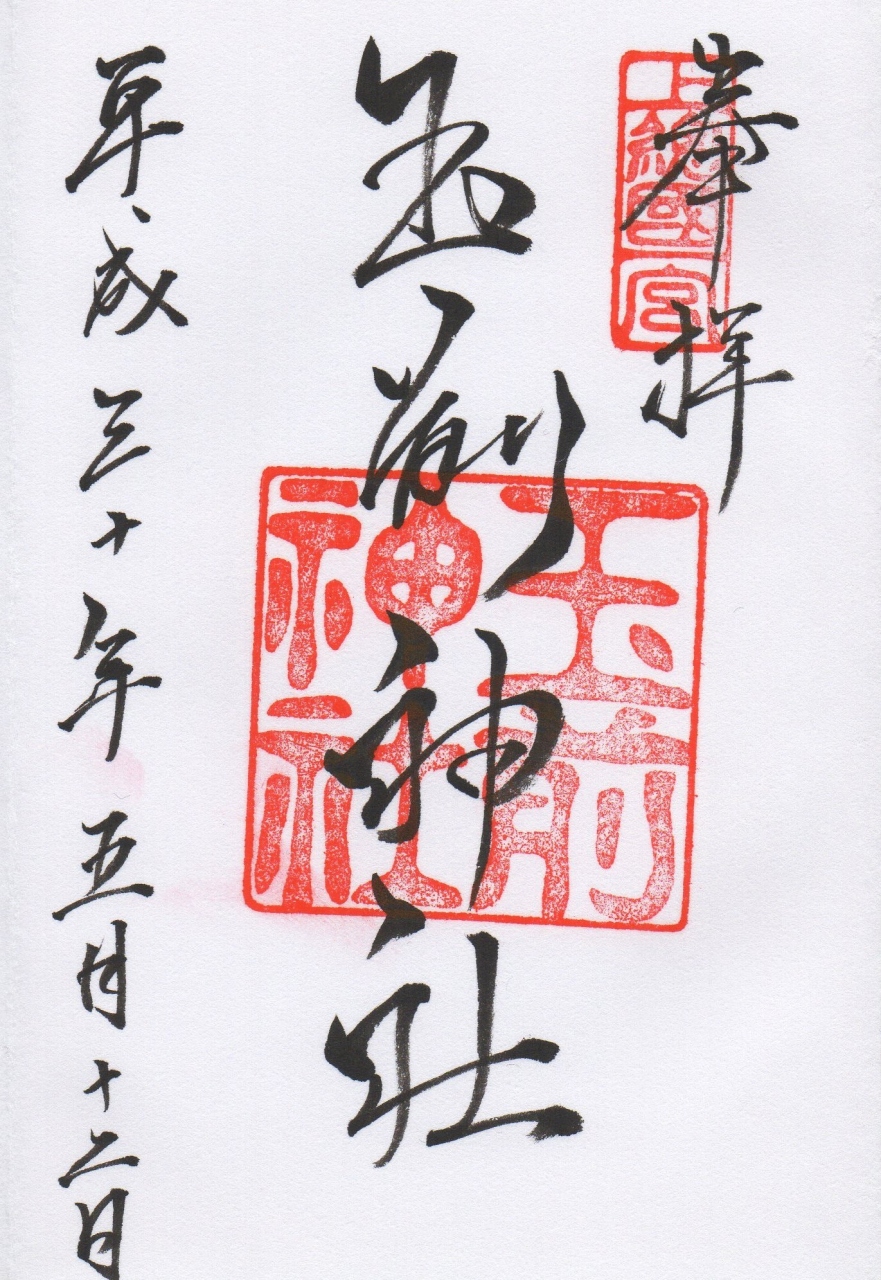 奉拝
上總國一宮
玉前神社
玉前
神社
平成三十年五月十二日